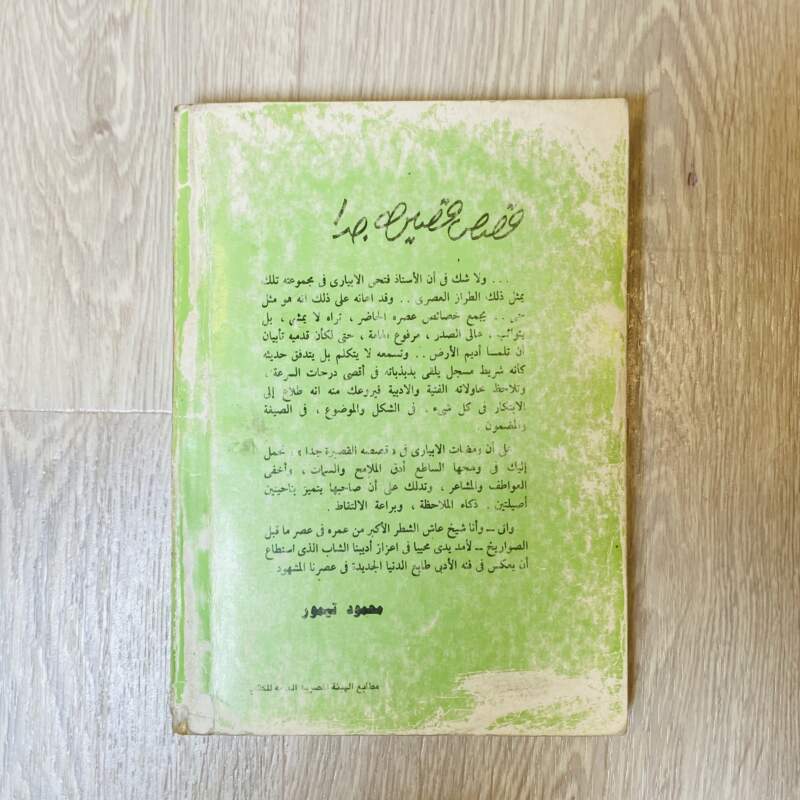 قصص قصيرة جدا
... ولا شك فى أن الأستاذ فتحى الابيارى فى مجموعته تلك
يمثل ذلك الطراز العصرى .. وقد اعانه على ذلك انه هو مثل
حى .. يجمع خصائص عصره الحاضر ، تراه لا يمشى ، بل
يتواثب . عالى الصدر ، مرفوع الهامة ، حتى لكأن قدميه تأبيان
أن تلمسا أديم الأرض .. وتسمعه لا يتكلم بل يتدفق حديثه
كأنه شريط مسجل يلقى بذبذباته فى أقصى درجات السرعة .
وتلاحظ محاولاته الفنية والادبية فيروعك منه انه طلاع إلى
الابتكار فى كل شىء . فى الشكل والموضوع ، فى الصيغة
والمضمون .
على أن ومضات الابيارى فى « قصصه القصيرة جدا » . تحمل
إليك فى ومحها الساطع أدق الملامح والسمات ، وأخفى
العواطف والمشاعر ، وتدلك على أن صاحبها يتميز بناحيتين
أصيلتين . ذكاء الملاحظة ، وبراعة الالتقاط .
وانى ــ وأنا شيخ عاش الشطر الأكبر من عمره فى عصر ما قبل
الصواريخ ــ لأمد يدى محييا فى اعزاز أديبنا الشاب الذى استطاع
أن يعكس فى فنه الأدبى طابع الدنيا الجديدة فى عصرنا المشهود
محمود تيمور
مطابع الهيئة المصرية العامة للكتاب